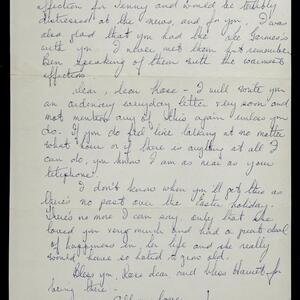 affection for Jenny and would be terribly
distressed at the news, and for you. I was
also glad that you had the
with you. I never met them but remember
Ben speaking of them with the warmest
affection.
Dear, dear Rose - I will write you
an ordinary everyday letter very soon and
not mention any of this again unless you
do. If you do feel like talking at no matter
what hour or if there is anything at all I
can do, you know I am as near as your
telephone.
I don't know when you'll get this as
there's no post over the Easter holiday.
There's no more I can say, only that she
loved you very much and had a great deal
of happiness in her life and she really
would have so hated to grow old.
Bless you, Rose dear and bless for
being there -
All my love